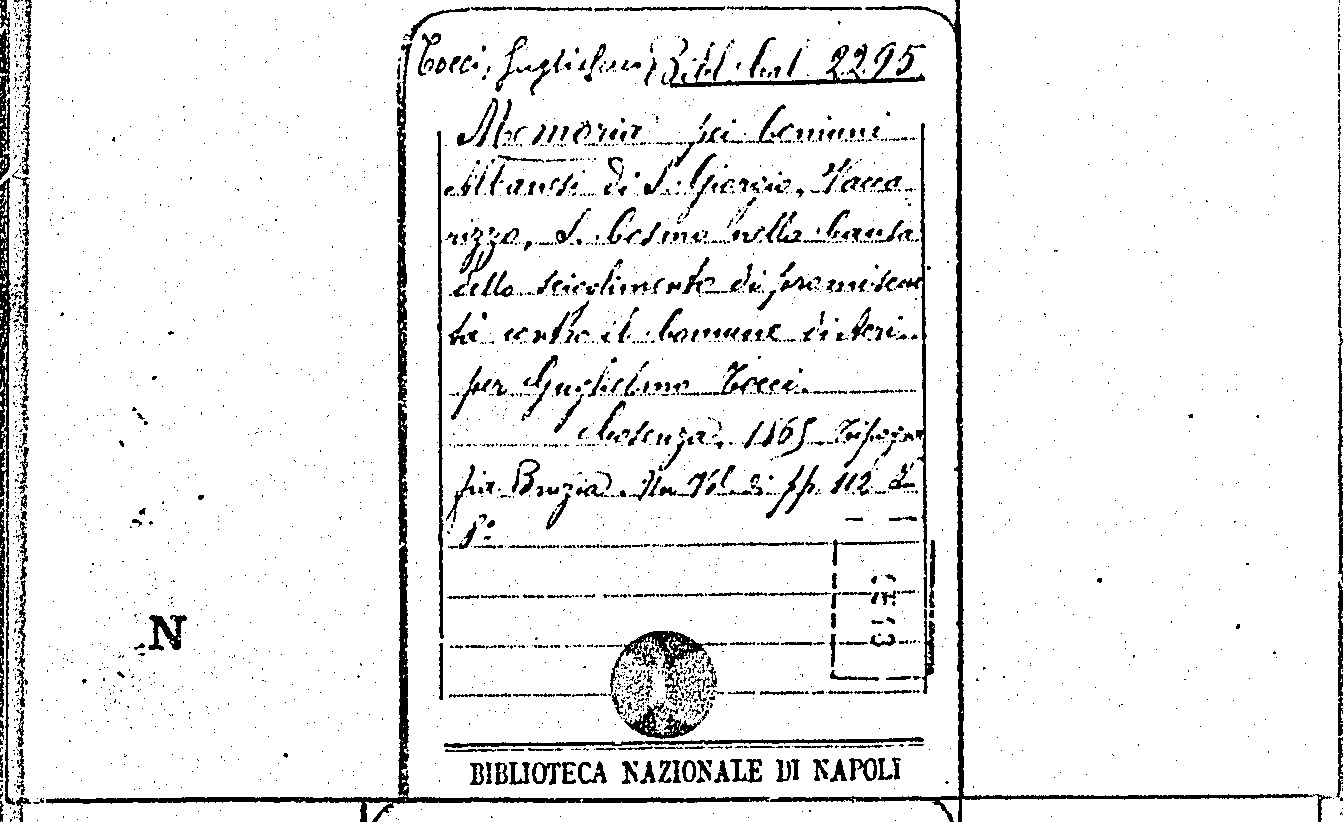 Tocci, Guglielmo Bibl. Cal. 2295.
Memoria pei Comuni
Albanesi di S. Giorgio, Vacca
rizzo, S. Cosmo nella Causa
dello scioglimento di promiscui
tà contro il Comune di Acri
per Guglielmo Tocci.
Cosenza, 1865 Tipogra
fia Bruzia. Un Vol. di pp. 112 in
8º
N
BIBLIOTECA NAZIONALE DI NAPOLI